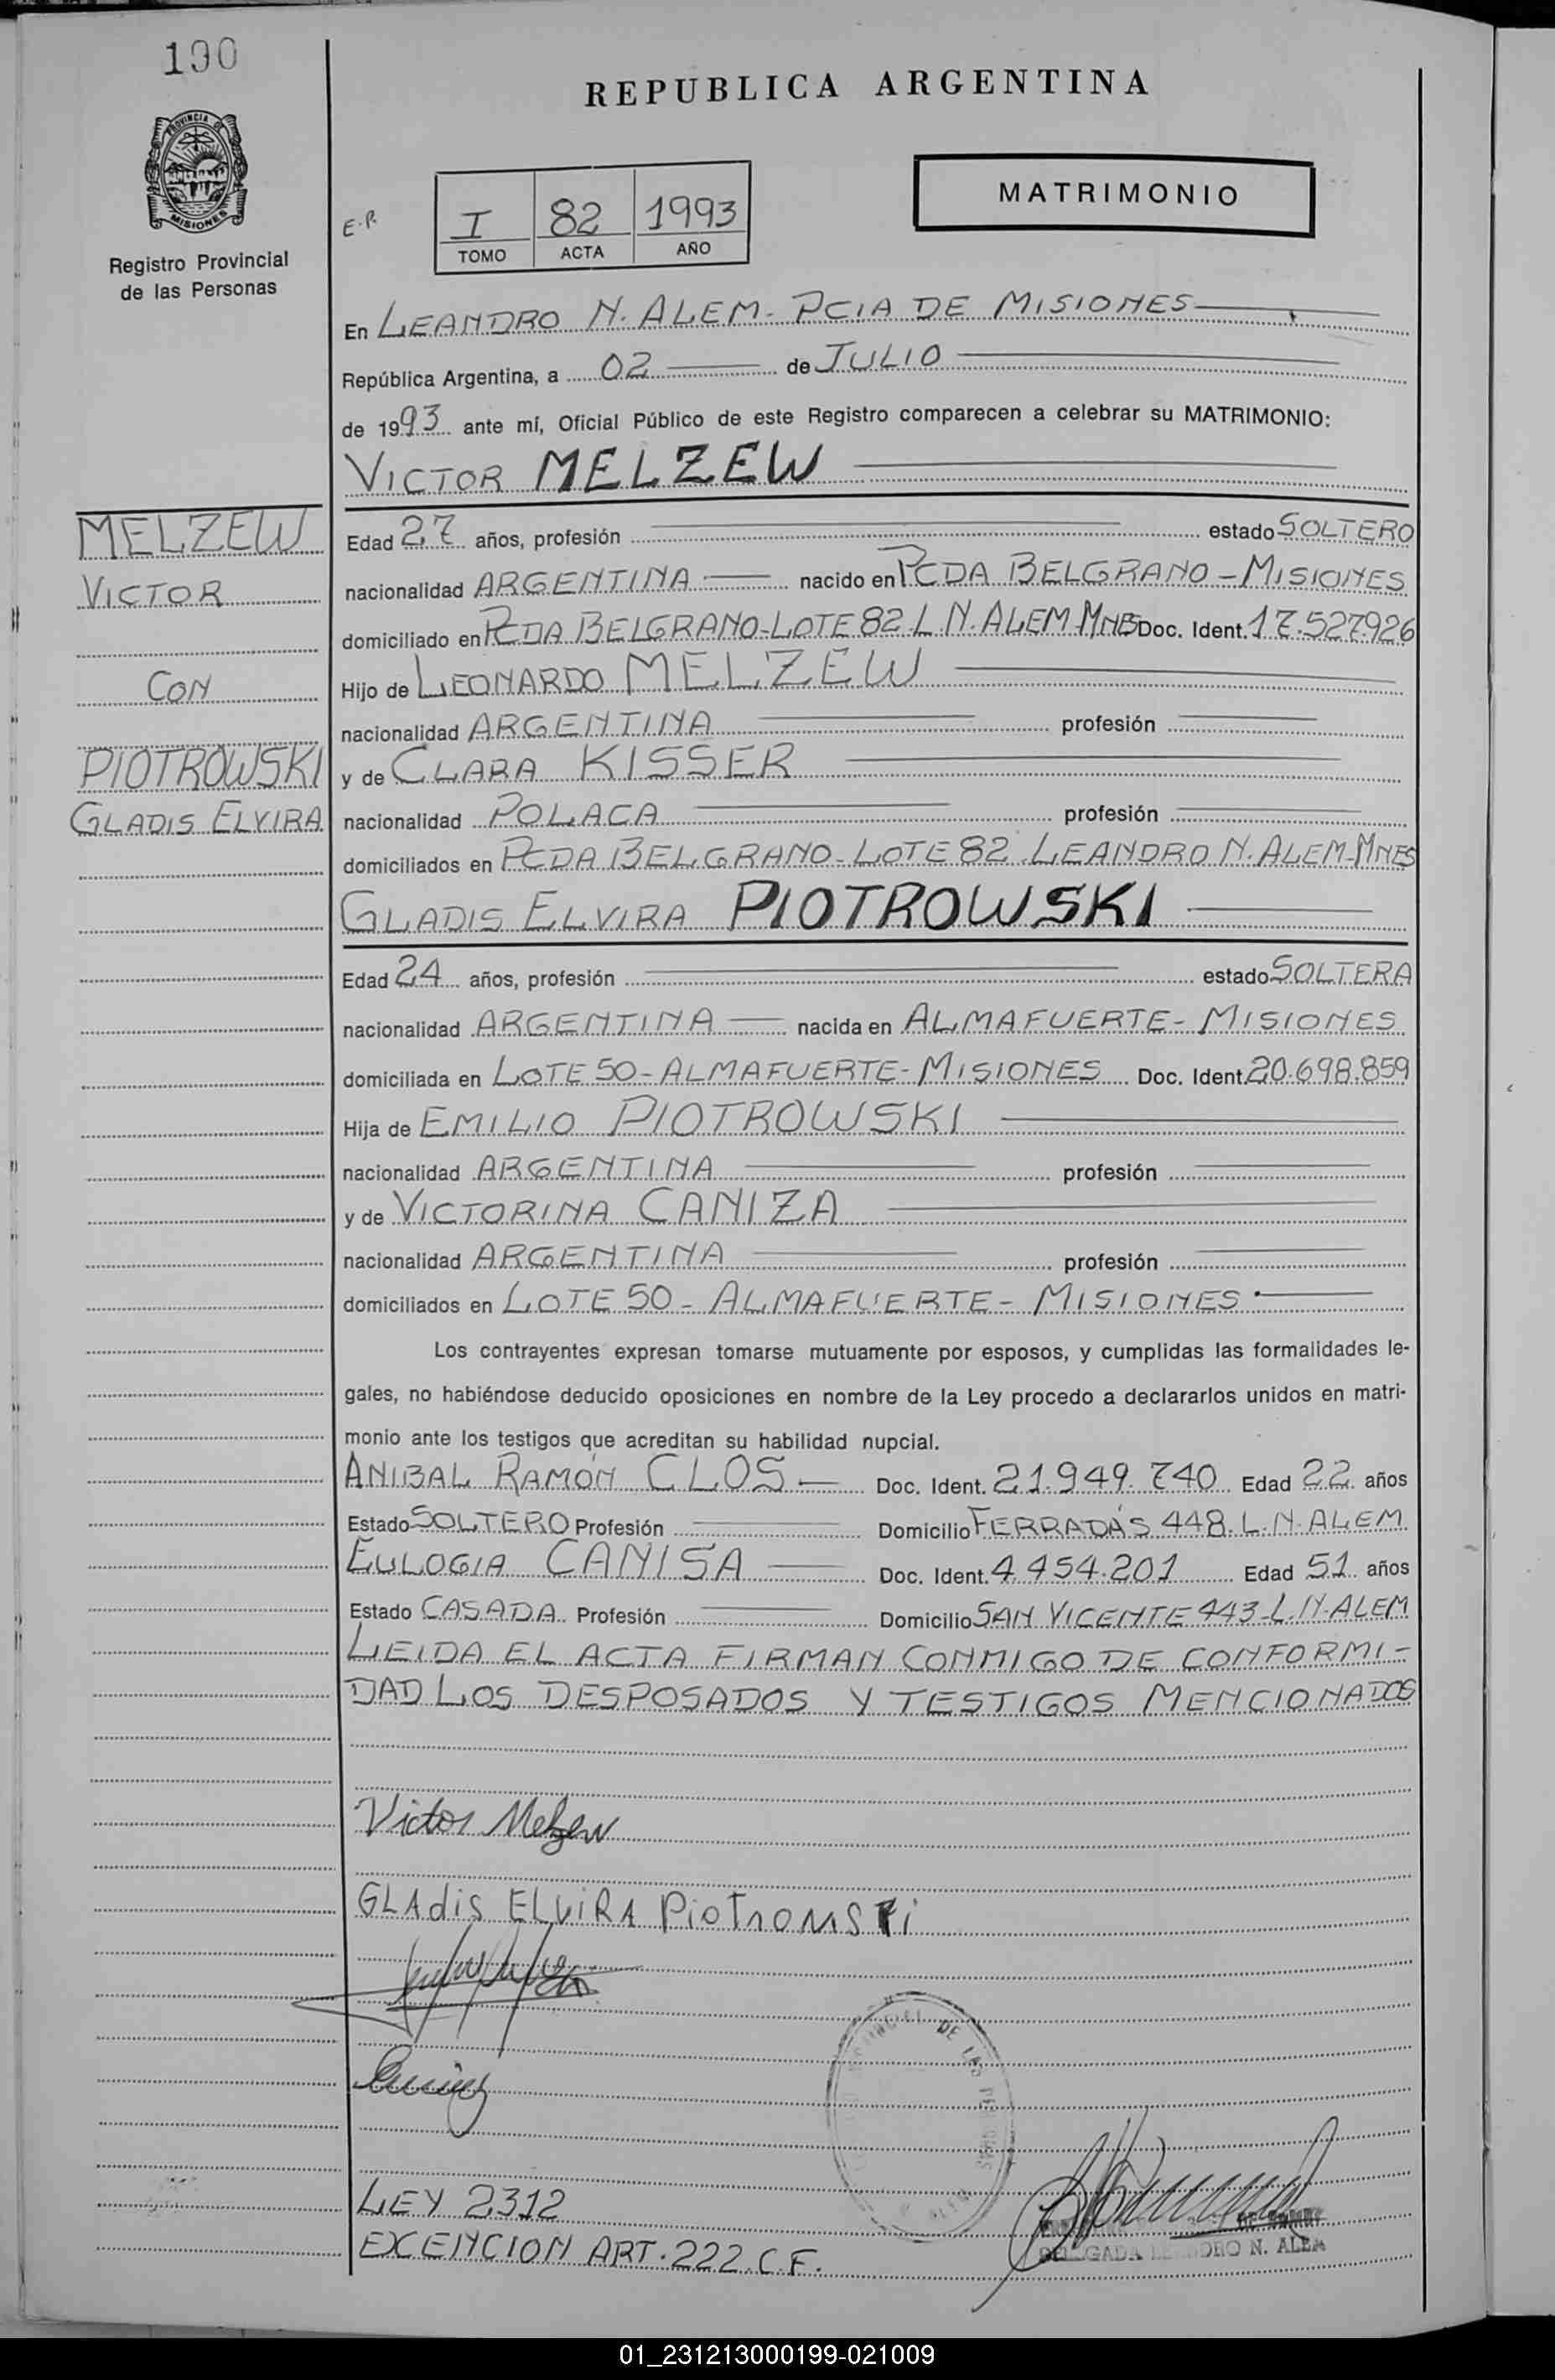 190
REPUBLICA ARGENTINA
PROVINCIA DE
MISIONES
Registro Provincial
de las Personas
MATRIMONIO
E.P.
I 82 1993
TOMO ACTA AÑO
En LEANDRO N. ALEM - PCIA DE MISIONES
República Argentina, a 02 de JULIO
de 1993 ante mí, Oficial Público de este Registro comparecen a celebrar su MATRIMONIO:
VICTOR MELZEW
MELZEW
VICTOR
CON
PIOTROWSKI
GLADIS ELVIRA
Edad 27 años, profesión estado SOLTERO
nacionalidad ARGENTINA nacido en PCDA BELGRANO - MISIONES
domiciliado en PCDA BELGRANO-LOTE 82. L N. ALEM-MNES Doc. Ident. 17.527.926
Hijo de LEONARDO MELZEW
nacionalidad ARGENTINA profesión
y de CLARA KISSER
nacionalidad POLACA profesión
domiciliados en PCDA BELGRANO - LOTE 82. LEANDRO N. ALEM-MNES
GLADIS ELVIRA PIOTROWSKI
Edad 24 años, profesión estado SOLTERA
nacionalidad ARGENTINA nacida en ALMAFUERTE - MISIONES
domiciliada en LOTE 50 - ALMAFUERTE - MISIONES Doc. Ident. 20.698.859
Hija de EMILIO PIOTROWSKI
nacionalidad ARGENTINA profesión
y de VICTORINA CANIZA
nacionalidad ARGENTINA profesión
domiciliados en LOTE 50 - ALMAFUERTE - MISIONES
Los contrayentes expresan tomarse mutuamente por esposos, y cumplidas las formalidades le-
gales, no habiéndose deducido oposiciones en nombre de la Ley procedo a declararlos unidos en matri-
monio ante los testigos que acreditan su habilidad nupcial.
ANIBAL RAMÓN CLOS Doc. Ident. 21.949.740 Edad 22 años
Estado SOLTERO Profesión Domicilio FERRADÁS 448. L.N.ALEM
EULOGIA CANISA Doc. Ident. 4.454.201 Edad 51 años
Estado CASADA Profesión Domicilio SAN VICENTE 443-L.N.ALEM
LEIDA EL ACTA FIRMAN CONMIGO DE CONFORMI-
DAD LOS DESPOSADOS Y TESTIGOS MENCIONADOS
Victor Melzew
GLAdis ELviRA PioTrowski
DE LAS PERSONAS
LEY 2312
EXENCION ART. 222. C.F.
DELEGADA LEANDRO N. ALEM
01_231213000199-021009